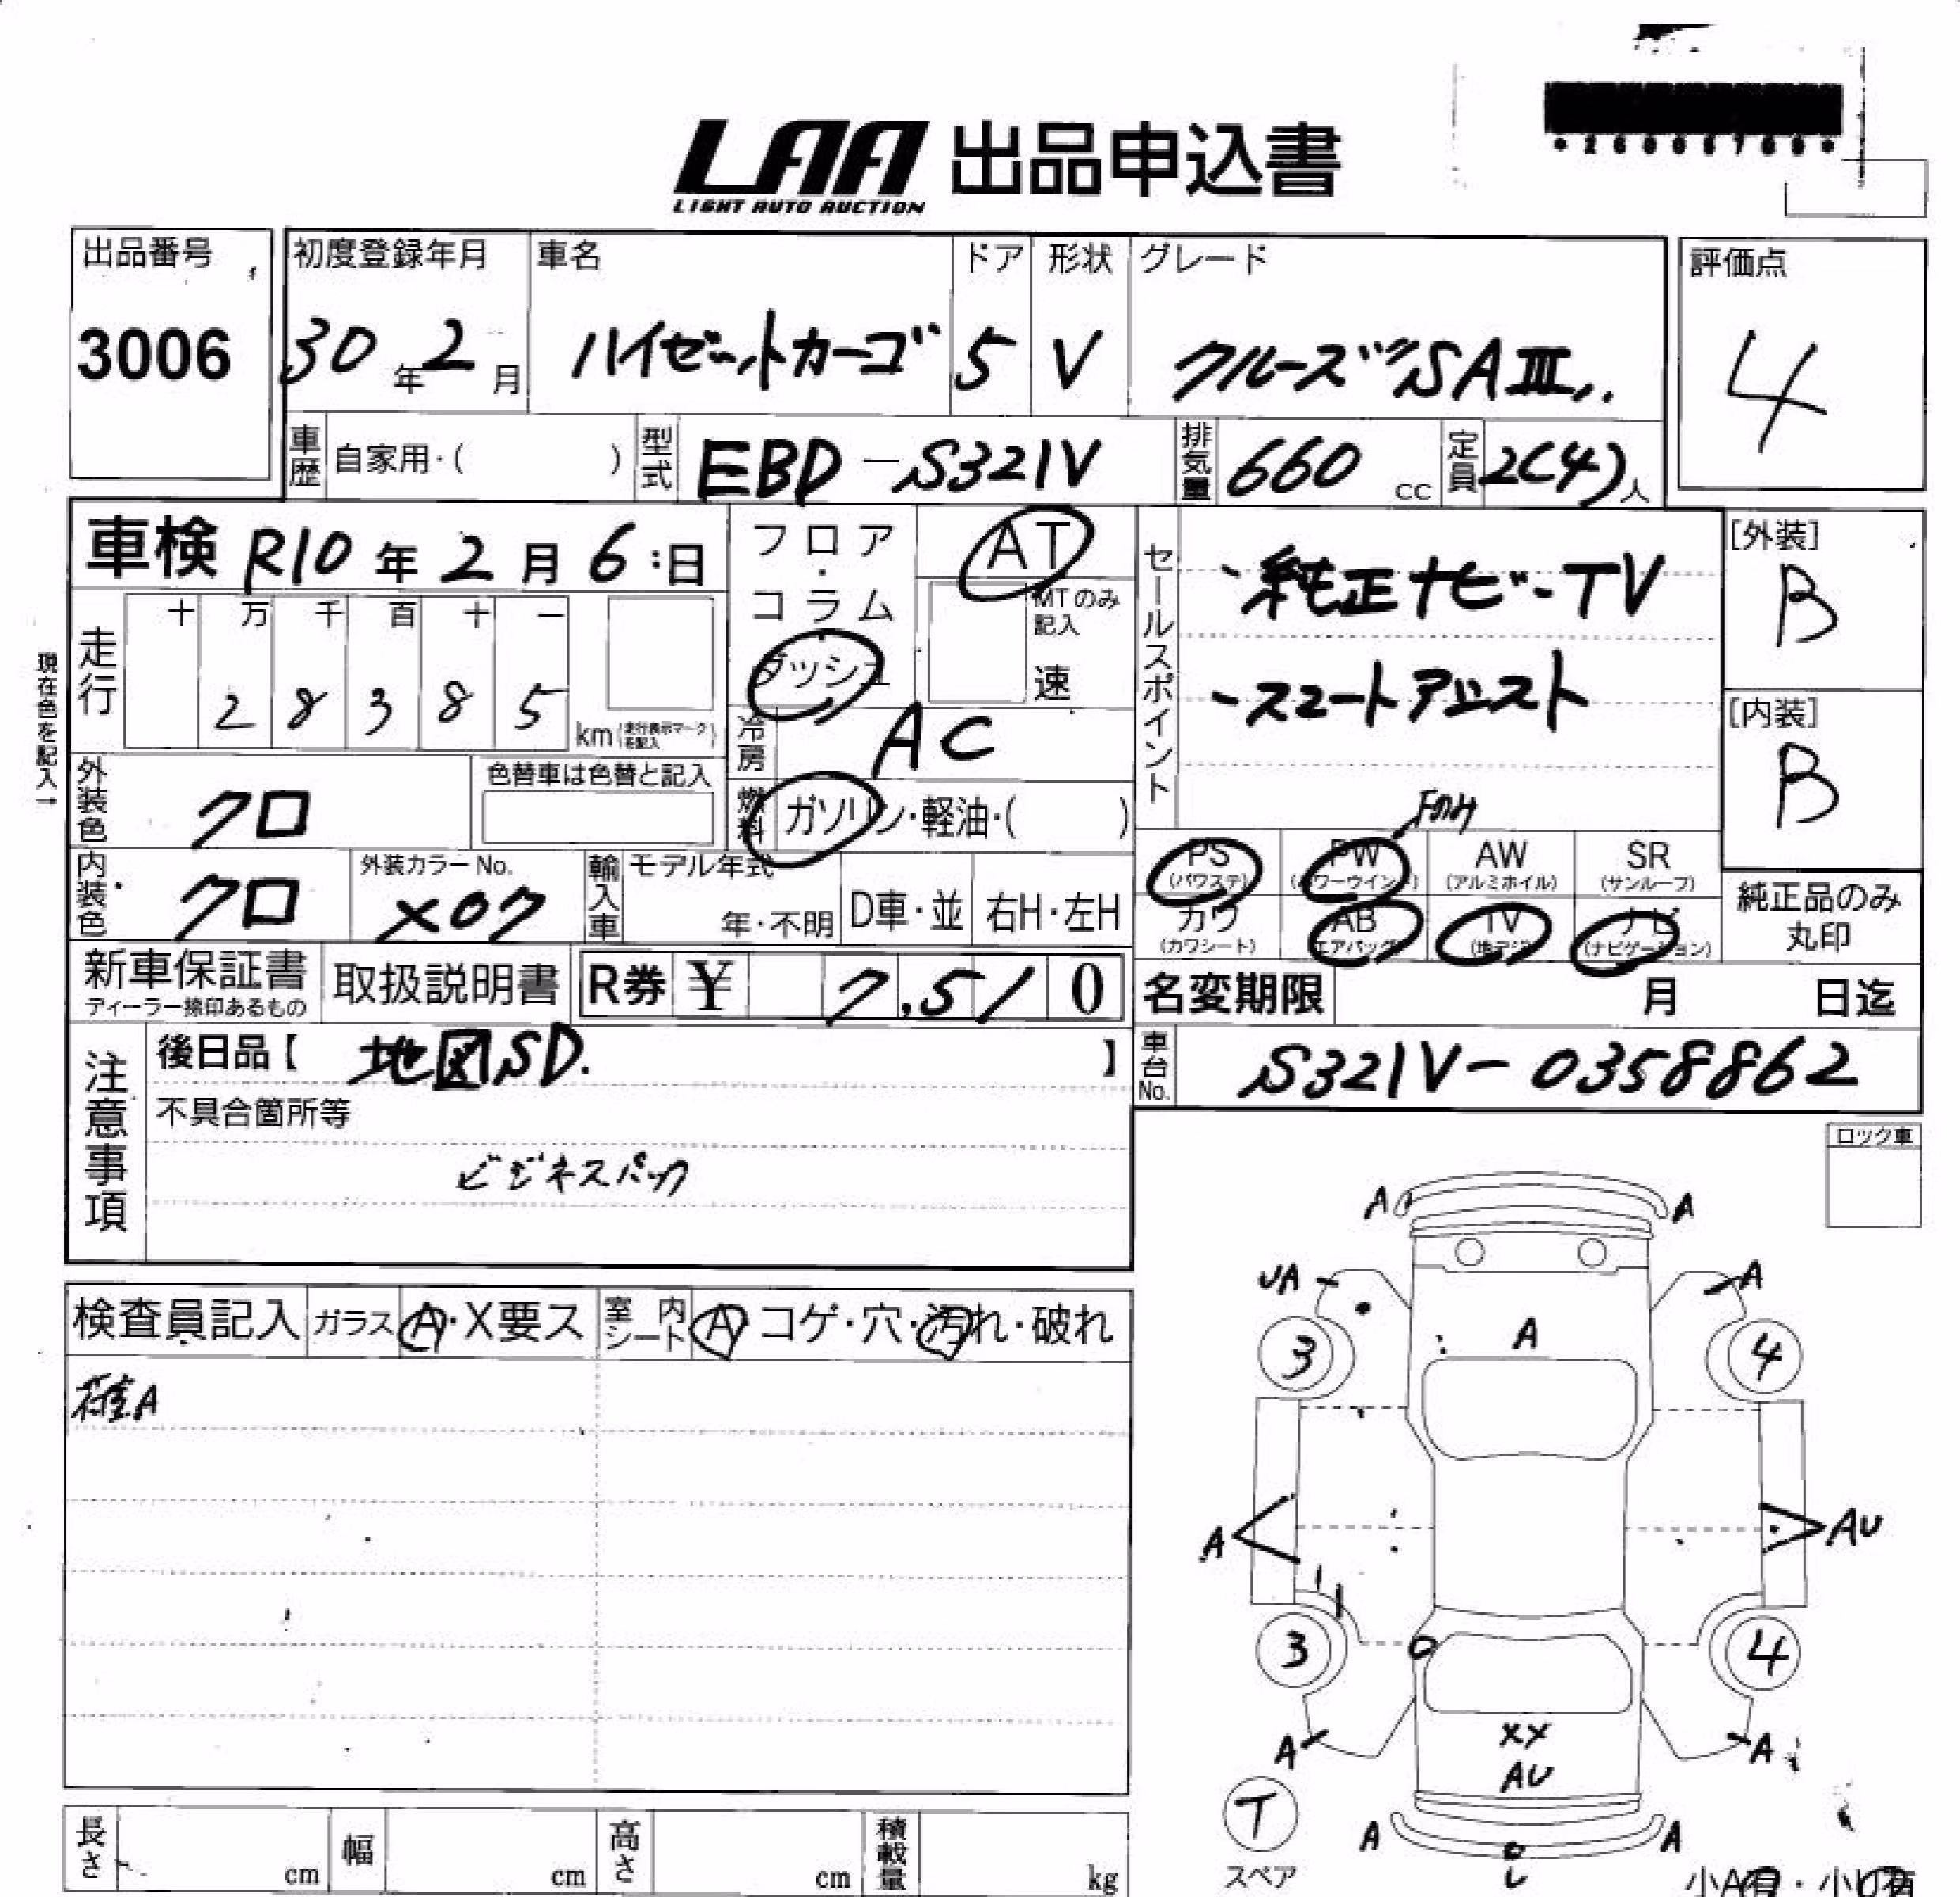 LAA 出品申込書
LIGHT AUTO AUCTION
出品番号
3006
初度登録年月
30年2月
車名
ハイゼットカーゴ
ドア
5
形状
V
グレード
クルーズSAⅢ
評価点
4
車歴 自家用・( )
型式 EBD-S321V
排気量 660 cc
定員 2(4)人
車検 R10年2月6日
フロア・コラム・ダッシュ
AT
MTのみ記入
速
セールスポイント
・純正ナビ-TV
-スマートアシスト
[外装]
B
[内装]
B
現在色を記入→
走行
十 万 千 百 十 一
2 8 3 8 5 km (走行表示マークを記入)
冷房 AC
外装色 クロ
色替車は色替と記入
燃料 ガソリン・軽油・( )
内装色 クロ
外装カラーNo.
X07
輸入車 モデル年式
年・不明
D車・並
右H・左H
PS (パワステ)
PW (パワーウインド)
AW (アルミホイル)
SR (サンルーフ)
カワ (カワシート)
AB (エアバック)
TV (地デジ)
ナビ (ナビゲーション)
純正品のみ丸印
新車保証書
ディーラー捺印あるもの
取扱説明書
R券 ¥ 7,510
名変期限 月 日迄
注意事項
後日品【 地図SD. 】
車台No. S321V-0358862
不具合箇所等
ビジネスパック
ロック車
検査員記入
ガラス A・X要ス
室内シート A コゲ・穴・汚れ・破れ
A A
UA A
3 A 4
A AU
3 4
A XX A
AU
T
スペア
A A
長さ cm
幅 cm
高さ cm
積載量 kg